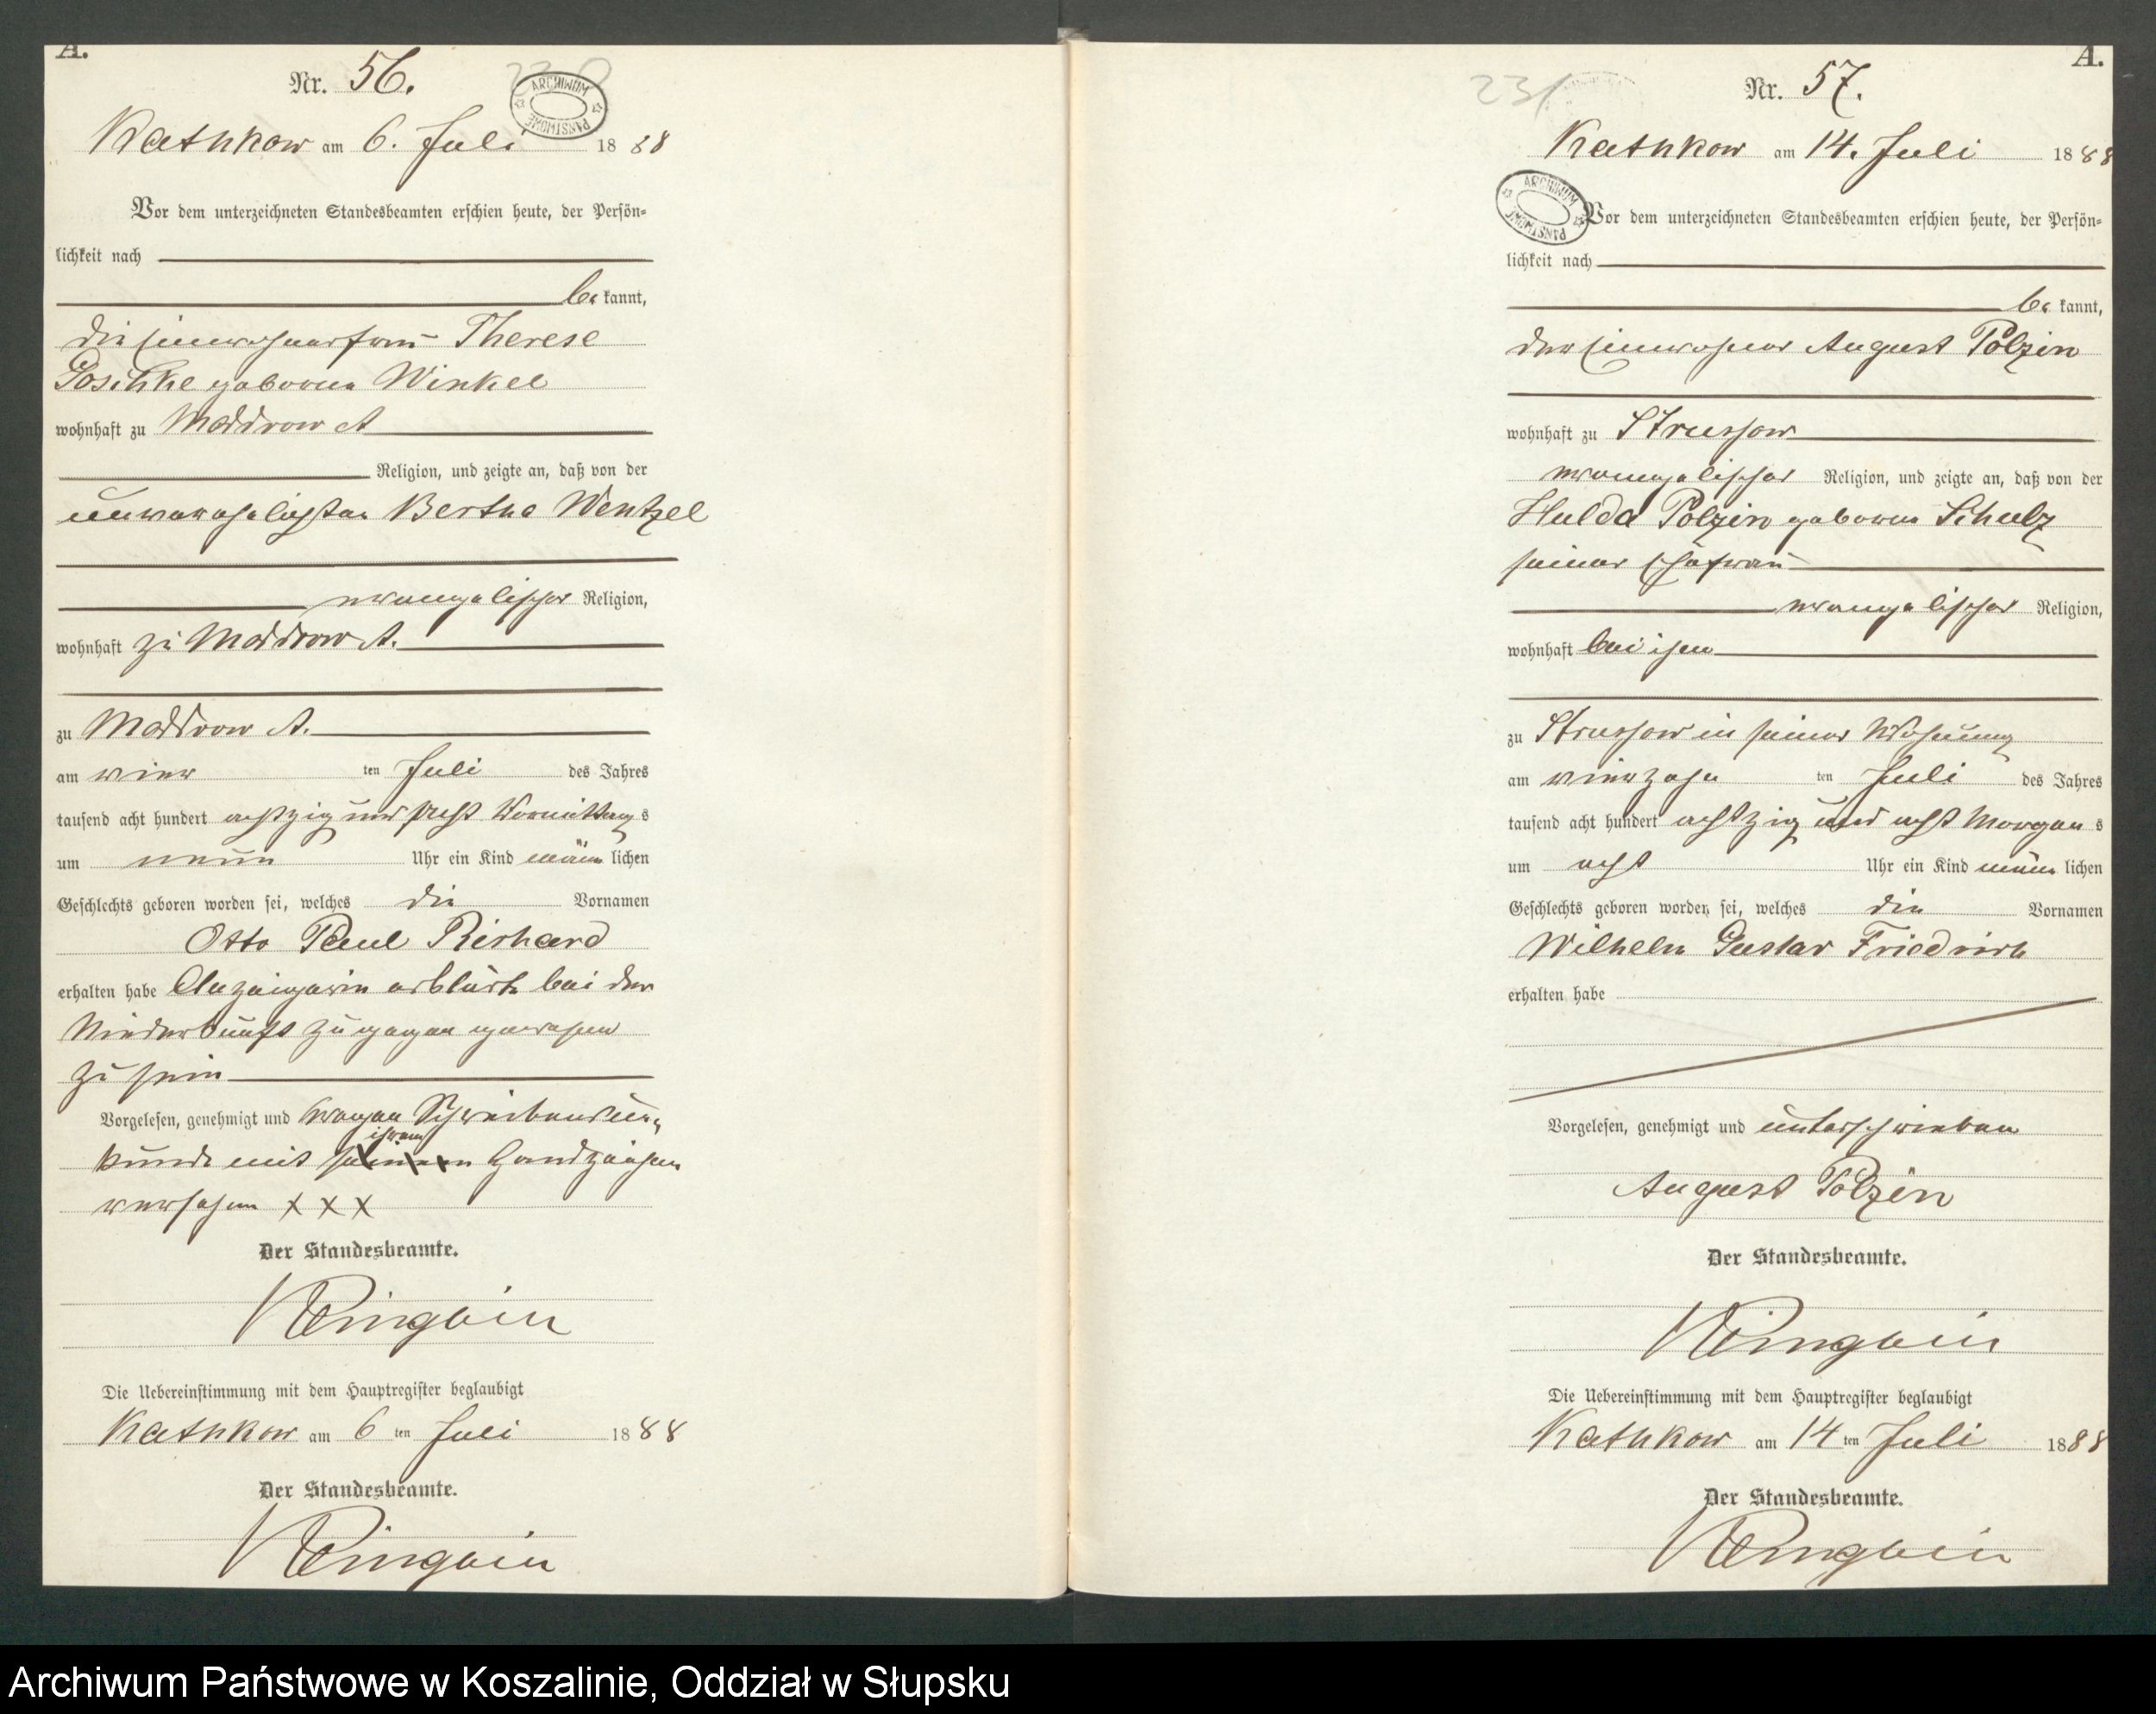 A.
Nr. 56.
Kathkow am 6. Juli 1888
Vor dem unterzeichneten Standesbeamten erschien heute, der Persön=
lichkeit nach
be kannt,
die Einwohnerfrau Therese
Poschke geborene Winkel
wohnhaft zu Moddrow A
Religion, und zeigte an, daß von der
unverehelichten Bertha Wentzel
evangelischer Religion,
wohnhaft zu Moddrow A.
zu Moddrow A.
am vier ten Juli des Jahres
tausend acht hundert achtzig und acht Vormittags
um neun Uhr ein Kind männlichen
Geschlechts geboren worden sei, welches die Vornamen
Otto Paul Richard
erhalten habe Anzeigerin erklärte bei der
Niederkunft zugegen gewesen
zu sein
Vorgelesen, genehmigt und wegen Schreibensun=
ihrem
kunde mit seinem Handzeichen
versehen XXX
Der Standesbeamte.
Die Uebereinstimmung mit dem Hauptregister beglaubigt
Kathkow am 6 ten Juli 1888
Der Standesbeamte.
A.
231
Nr. 57.
Kathkow am 14. Juli 1888
ARCHIWUM PAŃSTWOWE
Vor dem unterzeichneten Standesbeamten erschien heute, der Persön=
lichkeit nach
be kannt,
der Einwohner August Polzin
wohnhaft zu Strussow
evangelischer Religion, und zeigte an, daß von der
Hulda Polzin geborene Schulz
seiner Ehefrau
evangelischer Religion,
wohnhaft bei ihm
zu Strussow in seiner Wohnung
am vierzehn ten Juli des Jahres
tausend acht hundert achtzig und acht Morgens
um acht Uhr ein Kind männlichen
Geschlechts geboren worden sei, welches die Vornamen
Wilhelm Gustav Friedrich
erhalten habe
Vorgelesen, genehmigt und unterschrieben
August Polzin
Der Standesbeamte.
Die Uebereinstimmung mit dem Hauptregister beglaubigt
Kathkow am 14 ten Juli 1888
Der Standesbeamte.
Archiwum Państwowe w Koszalinie, Oddział w Słupsku